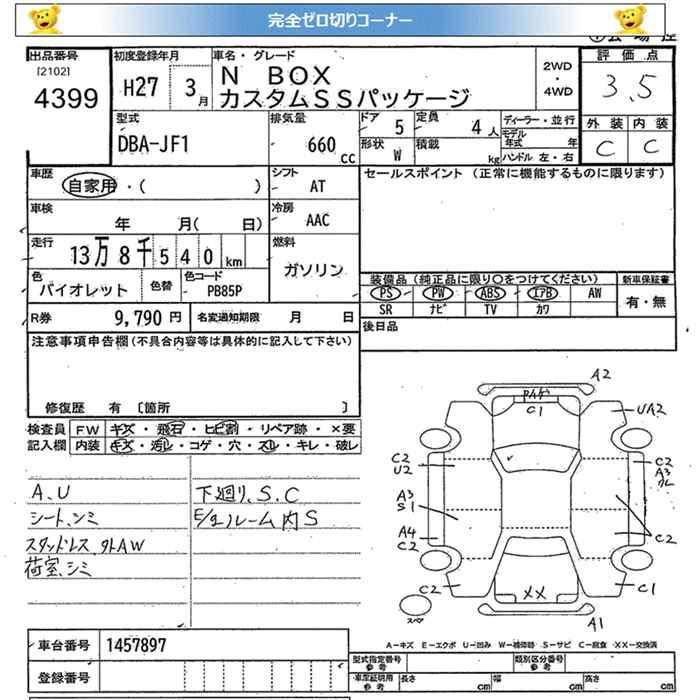 完全ゼロ切りコーナー
出品番号 初度登録年月 車名・グレード 評価点
[2102]
4399 H27 3月 N BOX 2WD・4WD 3.5
カスタムSSパッケージ
型式 排気量 ドア 定員 ディーラー・並行 外装 内装
DBA-JF1 660cc 5 4人 モデル年式 年 C C
形状 W 積載 kg ハンドル 左・右
車歴 シフト セールスポイント (正常に機能するものに限ります)
自家用・( ) AT
車検 冷房
年 月( 日) AAC
走行 燃料
13万8千540km ガソリン
色 色替 色コード 装備品 (純正品に限り○をつけてください) 新車保証書
バイオレット PB85P PS PW ABS エアB AW 有・無
SR ナビ TV カワ
R券 9,790円 名変通知期限 月 日 後日品
注意事項申告欄(不具合内容等は具体的に記入して下さい)
修復歴 有 〔箇所 〕
検査員 FW キズ・飛石・ヒビ割・リペア跡・×要
記入欄 内装 キズ・汚し・コゲ・穴・スレ・キレ・破レ
A.U 下廻り.S.C
シート.シミ E/gルーム内S
スタッドレス.外AW
荷室.シミ
A2
C1
UA2
C2
U2
C2
A3
A3
S1
A4
C2
C2
C2
XX
C1
スペア
A1
A-キズ E-エクボ U-凹み W-補修跡 S-サビ C-腐食 XX-交換済
車台番号 1457897 型式指定番号 参考 類別区分番号 参考
登録番号 車庫証明用 参考 長さ cm 幅 cm 高さ cm